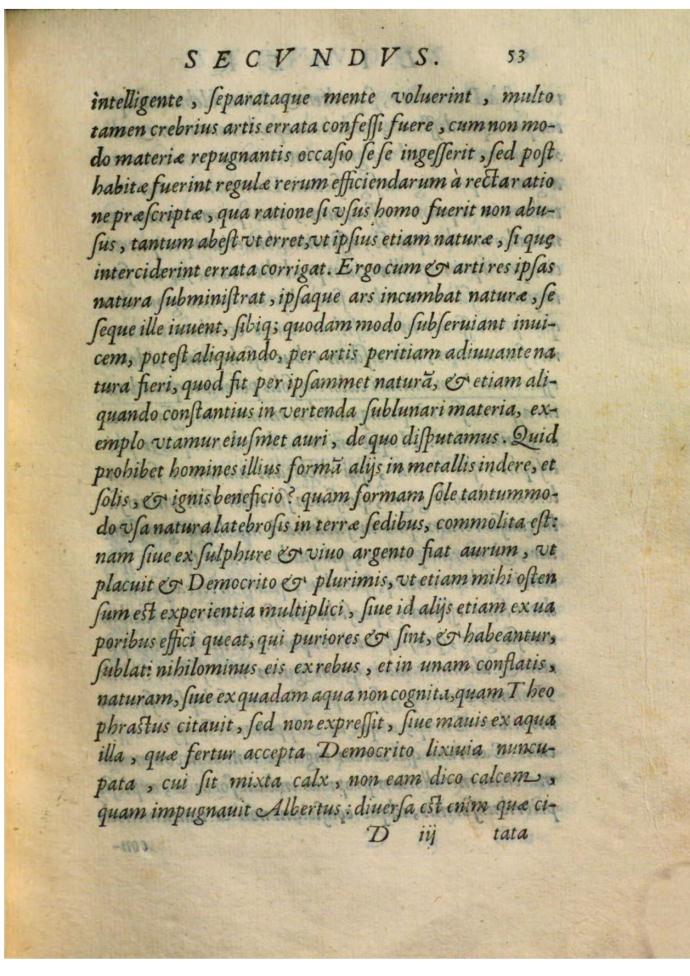 SECVNDVS. 53
intelligente, ſeparataque mente voluerint, multo
tamen crebrius artis errata confeſſi fuere, cum non mo-
do materiæ repugnantis occaſio ſe ſe ingeſſerit, ſed poſt
habitæ fuerint regulæ rerum efficiendarum à recta ratio
ne præſcriptæ, qua ratione ſi vſus homo fuerit non abu-
ſus, tantum abeſt vt erret, vt ipſius etiam naturæ, ſi quę
interciderint errata corrigat. Ergo cum & arti res ipſas
natura ſubminiſtrat, ipſaque ars incumbat naturæ, ſe
ſeque ille iuuent, ſibiq; quodam modo ſubſeruiant inui-
cem, poteſt aliquando, per artis peritiam adiuuante na
tura fieri, quod fit per ipſammet naturã, & etiam ali-
quando conſtantius in vertenda ſublunari materia, ex-
emplo vtamur eiuſmet auri, de quo diſputamus. Quid
prohibet homines illius formã alijs in metallis indere, et
ſolis, & ignis beneficio? quam formam ſole tantummo-
do vſa natura latebroſis in terræ ſedibus, commolita eſt:
nam ſiue ex ſulphure & viuo argento fiat aurum, vt
placuit & Democrito & plurimis, vt etiam mihi oſten
ſum eſt experientia multiplici, ſiue id alijs etiam ex ua
poribus effici queat, qui puriores & ſint, & habeantur,
ſublati nihilominus eis ex rebus, et in unam conflatis,
naturam, ſiue ex quadam aqua non cognita, quam Theo
phraſtus citauit, ſed non expreſſit, ſiue mauis ex aqua
illa, quæ fertur accepta Democrito lixiuia nuncu-
pata, cui ſit mixta calx, non eam dico calcem,
quam impugnauit Albertus: diuerſa eſt enim quæ ci-
D iij tata